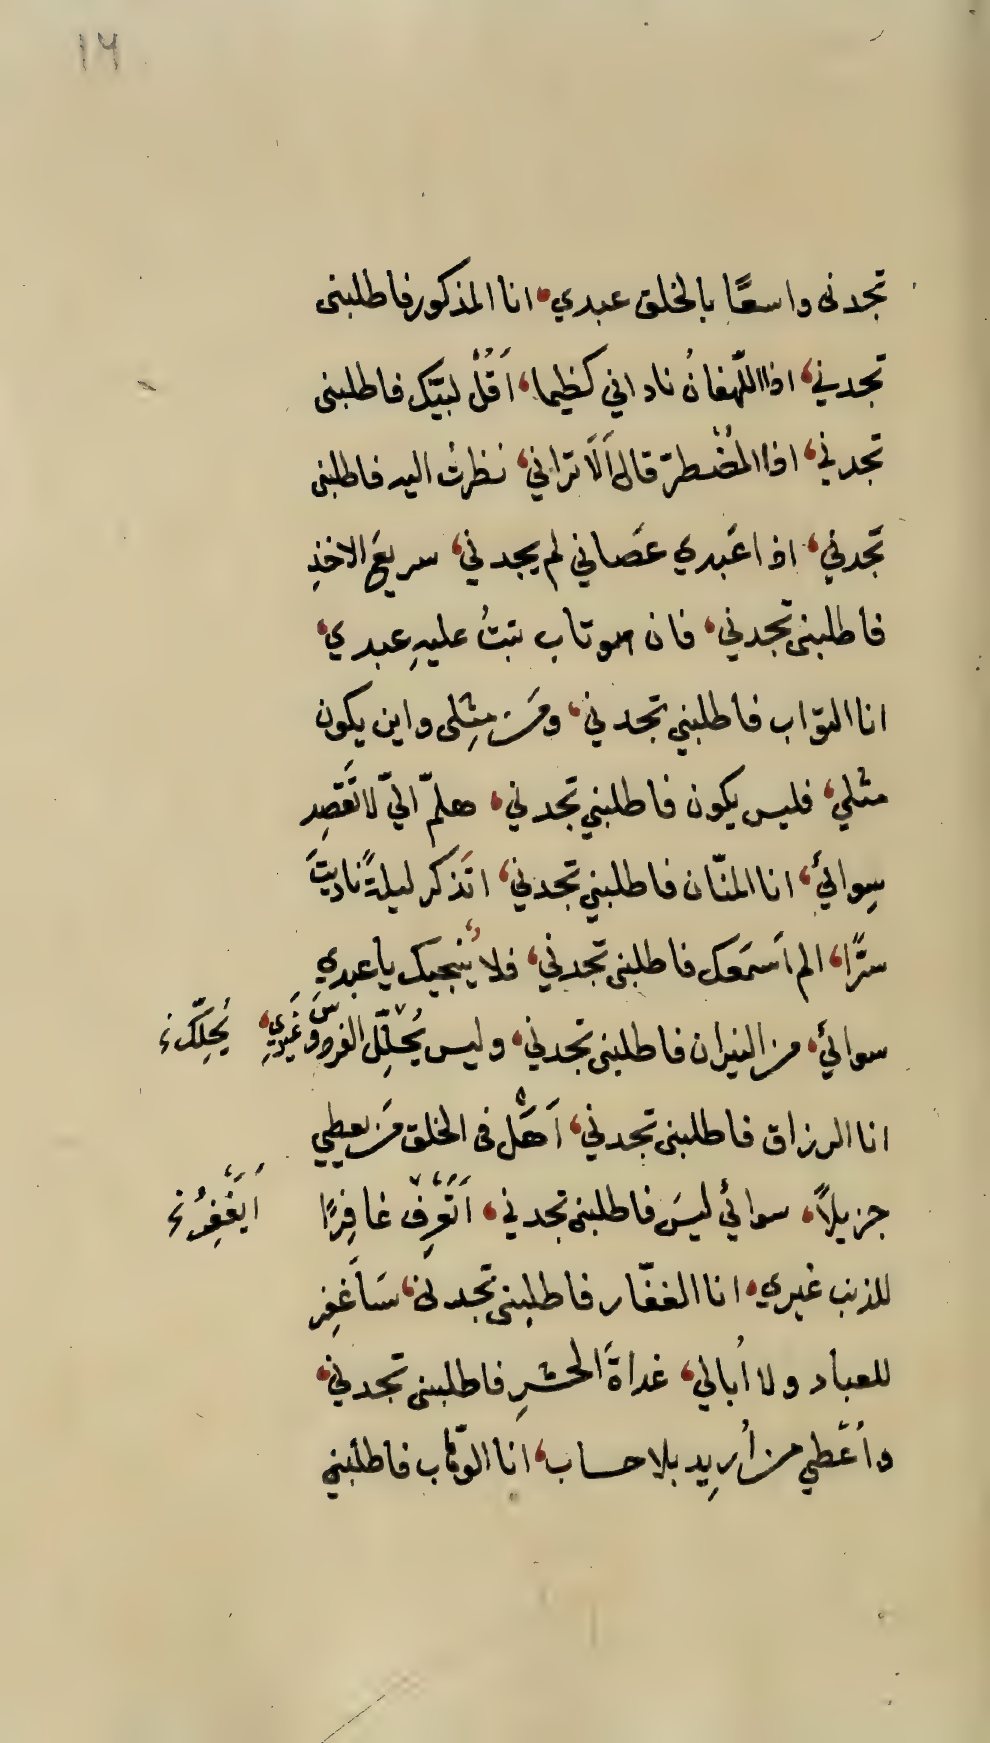 ١٦
تجدنى واسعًا بالخلق عبدي، انا المذكور فاطلبنى
تجدني، اذا اللّهفانُ ناداني كظيما، اَقُلْ لبّيك فاطلبنى
تجدني، اذا المُضْطرّ قال اَلَا تراني، نظرتُ اليه فاطلبنى
تجدني، اذا عَبدي عَصاني لم يجدني، سريعَ الاخذِ
فاطلبنى تجدني، فان هو تاب تبتُ عليهِ عبدي،
انا التوّاب فاطلبني تجدني، ومَن مِثلى واين يكون
مثلي، فليس يكون فاطلبني تجدني، هلمّ اليّ لا تَقصِد
سِوائي، انا المنّان فاطلبني تجدني، اتَذكر ليلةً ناديتَ
سرًّا، الم اَسمَعك فاطلبنى تجدني، فلا يُنجيك يا عبدي
سوائي، من النيران فاطلبنى تجدني، وليس يُحْلِلِ الفردوسَ غَيري، يُحِلِّكَ ءُ
انا الرزاق فاطلبنى تجدني، اَهَل فى الخلق مَن يعطي
جزيلاً، سوائي ليسَ فاطلبنى تجدني، اَتَعْرِفْ غافِرًا اَيَغفِرُ ءُ
للذنب غيري، انا الغفّار فاطلبنى تجدنى، سَاَغفِر
للعباد ولا اُبالي، غداةَ الحشرِ فاطلبنى تجدني،
واُعْطي من اُرِيد بلا حساب، انا الوهّاب فاطلبني